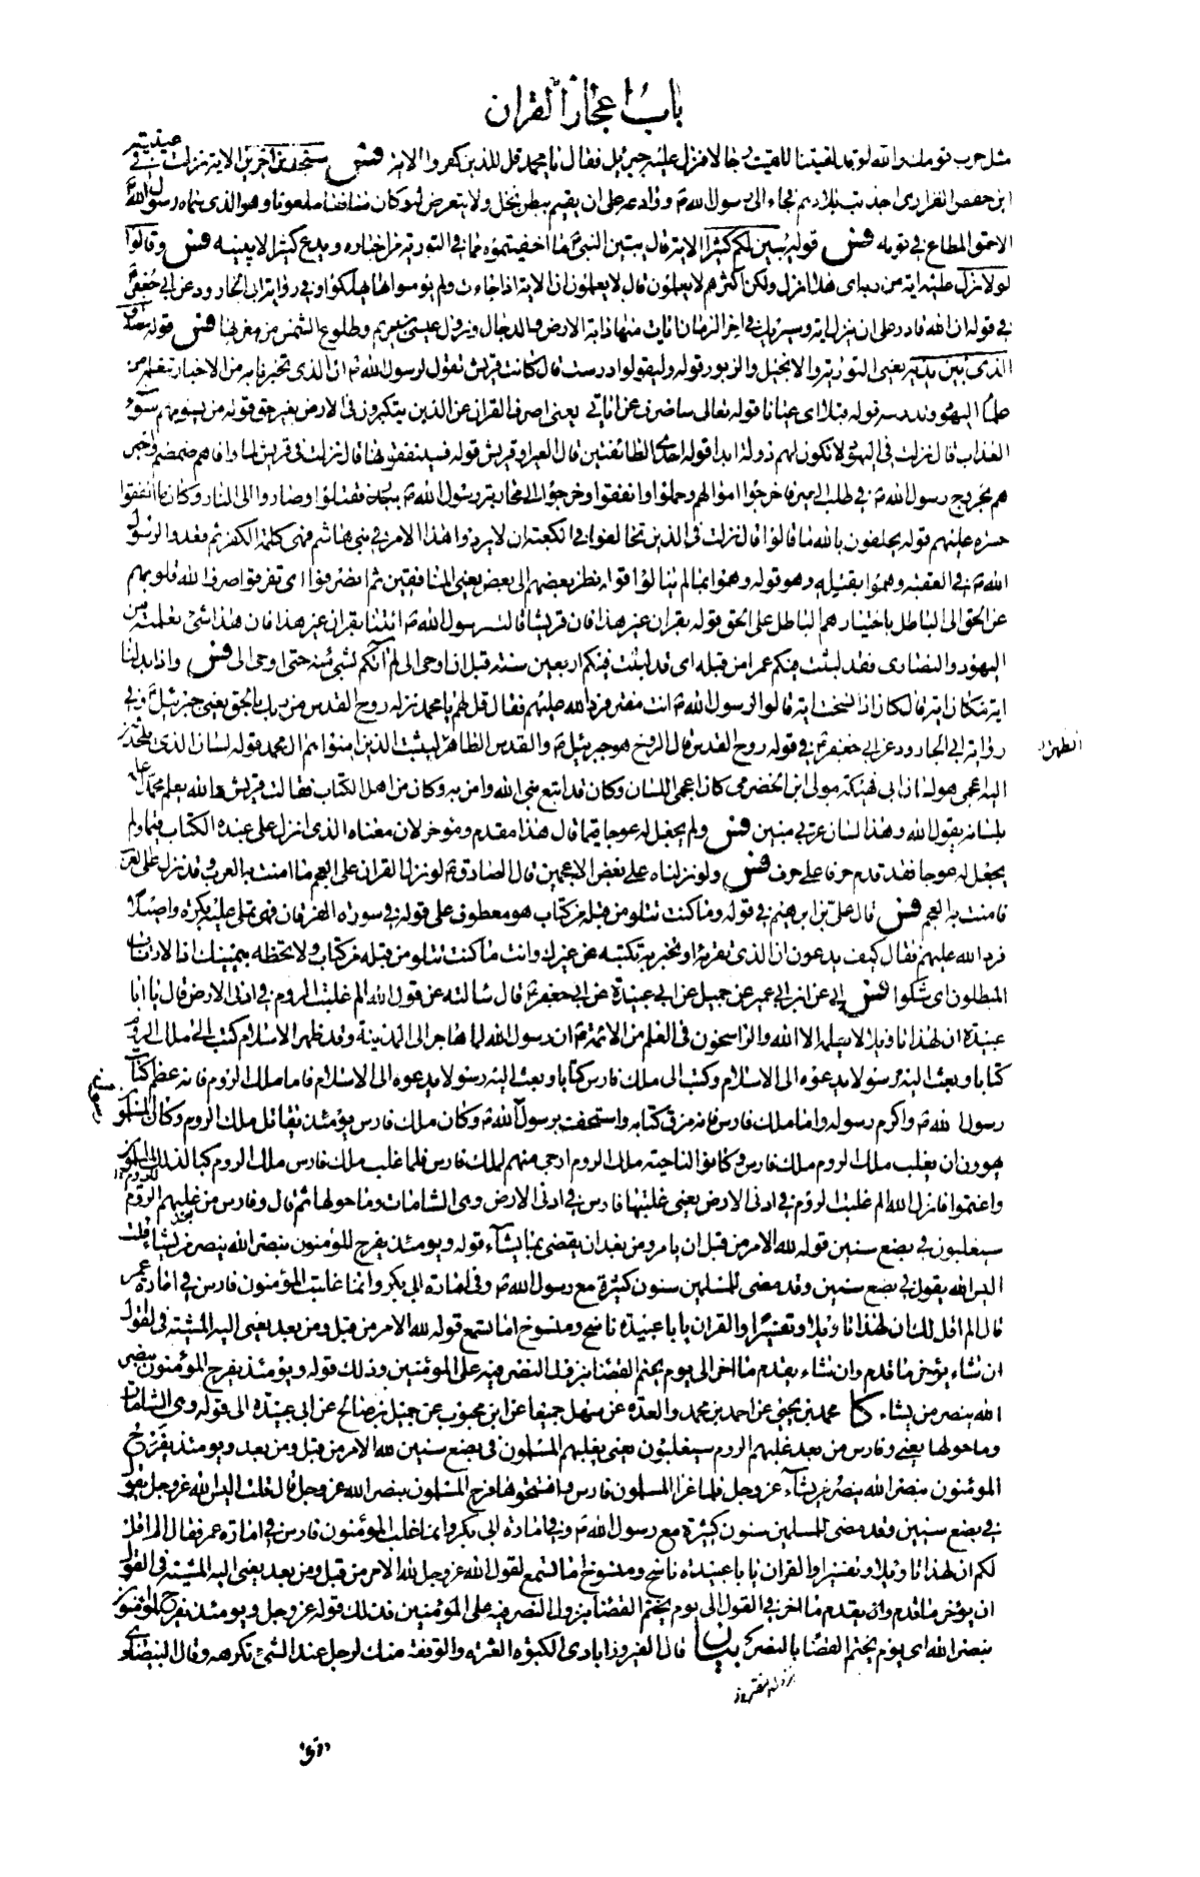 باب اعجاز القران
مثل حرب قومك والله لو قد لقيتنا للقيت رجالا فنزل عليه جبرئيل فقال يا محمد قل للذين كفروا الاية فس ستجدون اخرين الاية نزلت في عيينة
ابن حصن الفزاري اجدبت بلادهم فجاء الى رسول الله ص ووادعه على ان يقيم ببطن نخل ولا يتعرض له وكان منافقا ملعونا وهو الذي سماه رسول الله
الاحمق المطاع في قومه فس قوله يبين لكم كثيرا الاية قال يبين النبي ص ما اخفيتموه مما في التورية من اخباره ويدع كثيرا لا يبينه فس وقالوا
لولا نزل عليه اية من ربه اي هلا انزل ولكن اكثرهم لا يعلمون قال لا يعلمون ان الاية اذا جاءت ولم يؤمنوا بها يهلكوا وفي رواية ابي الجارود عن ابي جعفر
في قوله ان الله قادر على ان ينزل اية وسيريك في اخر الزمان ايات منها دابة الارض والدجال ونزول عيسى بن مريم وطلوع الشمس من مغربها فس قوله مصدق
الذي بين يديه يعني التورية والانجيل والزبور قوله وليقولوا درست قال كانت قريش تقول لرسول الله ص ان الذي تخبرنا به من الاخبار تتعلمه من
علماء اليهود وتدرسه قوله قبلا اي عيانا قوله تعالى ساصرف عن اياتي يعني اصرف القران عن الذين يتكبرون في الارض بغير حق قوله من يسومهم سوء
العذاب قال نزلت في اليهود لا تكون لهم دولة ابدا قوله احدى الطائفتين قال العير او قريش قوله فسينفقونها قال نزلت في قريش لما وافاهم ضمضم واخبر
هم بخروج رسول الله ص في طلب العير فاخرجوا اموالهم وحملوا وانفقوا وخرجوا الى محاربة رسول الله ص ببدر فقتلوا وصاروا الى النار وكان ما انفقوا
حسرة عليهم قوله يحلفون بالله ما قالوا قال نزلت في الذين تحالفوا في الكعبة ان لا يردوا هذا الامر في بني هاشم فهي كلمة الكفر ثم قعدوا لرسول
الله ص في العقبة وهموا بقتله وهو قوله وهموا بما لم ينالوا قوله نظر بعضهم الى بعض يعني المنافقين ثم انصرفوا اي تفرقوا صرف الله قلوبهم
عن الحق الى الباطل باختيارهم الباطل على الحق قوله بقران غير هذا فان قريشا قالت لرسول الله ص ائتنا بقران غير هذا فان هذا شئ تعلمته من
اليهود والنصارى فقد لبثت فيكم عمرا من قبله اي قد لبثت فيكم اربعين سنة قبل ان اوحى الي لم اتكم بشئ منه حتى اوحى الي فس واذا بدلنا
اية مكان اية قال كان اذا نسخت اية قالوا لرسول الله ص انت مفتر فرد الله عليهم فقال قل لهم يا محمد نزله روح القدس من ربك بالحق يعني جبرئيل وفي
رواية ابي الجارود عن ابي جعفر في قوله روح القدس قال الروح هو جبرئيل ع والقدس الطاهر ليثبت الذين امنوا هم ال محمد قوله لسان الذي يلحدون
اليه اعجمي هو لسان ابي فكيهة مولى ابن الحضرمي كان اعجمي اللسان وكان قد اتبع نبي الله وامن به وكان من اهل الكتاب فقالت قريش هذا والله يعلم محمدا علمه
بلسانه يقول الله وهذا لسان عربي مبين فس ولم يجعل له عوجا قيما قال هذا مقدم ومؤخر لان معناه الذي انزل على عبده الكتاب قيما ولم
يجعل له عوجا فقد قدم حرفا على حرف فس ولو نزلناه على بعض الاعجمين قال الصادق ع لو نزل القران على العجم ما امنت به العرب وقد نزل على العرب
فامنت به العجم فس قال علي بن ابرهيم في قوله وما كنت تتلو من قبله من كتاب هو معطوف على قوله في سورة الفرقان فهي تملى عليه بكرة واصيلا
فرد الله عليهم فقال كيف يدعون ان الذي تقرؤه او تخبر به تكتبه عن غيرك وانت ما كنت تتلو من قبله من كتاب ولا تخطه بيمينك اذا لارتاب
المبطلون اي شكوا فس ابي عن ابن ابي عمير عن جميل عن ابي عبيدة عن ابي جعفر قال سالته عن قول الله الم غلبت الروم في ادنى الارض قال يا ابا
عبيدة ان لهذا تاويلا لا يعلمه الا الله والراسخون في العلم من الائمة ان رسول الله لما هاجر الى المدينة وقد ظهر الاسلام كتب الى ملك الروم
كتابا وبعث اليه رسولا يدعوه الى الاسلام وكتب الى ملك فارس كتابا وبعث اليه رسولا يدعوه الى الاسلام فاما ملك الروم فانه عظم كتاب
رسول الله ص واكرم رسوله واما ملك فارس فانه مزق كتابه واستخف برسول الله ص وكان ملك فارس يومئذ يقاتل ملك الروم وكان المسلمون
يهوون ان يغلب ملك الروم ملك فارس وكانوا لناحية ملك الروم ارجى منهم لملك فارس فلما غلب ملك فارس ملك الروم بكى لذلك المسلمون
واغتموا فانزل الله الم غلبت الروم في ادنى الارض يعني غلبتها فارس في ادنى الارض وهي الشامات وما حولها ثم قال وفارس من بعد غلبهم الروم
سيغلبون في بضع سنين قوله لله الامر من قبل ان يامر ومن بعد ان يقضي بما يشاء قوله ويومئذ يفرح المؤمنون بنصر الله ينصر من يشاء قلت
اليس الله يقول في بضع سنين وقد مضى للمسلمين سنون كثيرة مع رسول الله ص وفي امارة ابي بكر وانما غلبت المؤمنون فارس في امارة عمر
قال الم اقل لك ان لهذا تاويلا وتفسيرا والقران يا با عبيدة ناسخ ومنسوخ اما تسمع قوله لله الامر من قبل ومن بعد يعني اليه المشية في القول
ان شاء يؤخر ما قدم وان شاء يقدم ما اخر الى يوم يحتم القضاء بنزول النصر فيه على المؤمنين وذلك قوله ويومئذ يفرح المؤمنون بنصر
الله ينصر من يشاء كا محمد بن يحيى عن احمد بن محمد والعدة عن سهل جميعا عن ابن محبوب عن جميل بن صالح عن ابي عبيدة الى قوله وهي الشامات
وما حولها يعني وفارس من بعد غلبهم الروم سيغلبون يعني يغلبهم المسلمون في بضع سنين لله الامر من قبل ومن بعد ويومئذ يفرح
المؤمنون بنصر الله ينصر من يشاء عز وجل فلما غزا المسلمون فارس وافتتحوها فرح المسلمون بنصر الله عز وجل قال قلت اليس الله عز وجل يقول
في بضع سنين وقد مضى للمسلمين سنون كثيرة مع رسول الله ص وفي امارة ابي بكر وانما غلب المؤمنون فارس في امارة عمر فقال الم اقل
لكم ان لهذا تاويلا وتفسيرا والقران يا با عبيدة ناسخ ومنسوخ اما تسمع لقول الله عز وجل لله الامر من قبل ومن بعد يعني اليه المشية في القول
ان يؤخر ما قدم وان يقدم ما اخر في القول الى يوم يحتم القضاء بنزول النصر فيه على المؤمنين فذلك قوله عز وجل ويومئذ يفرح المؤمنون
بنصر الله اي يوم يحتم القضاء بالنصر بيان قال الفيروزابادي الكبوة العثرة والوقفة منك لرجل عند الشئ تكرهه وقال البيضاوي